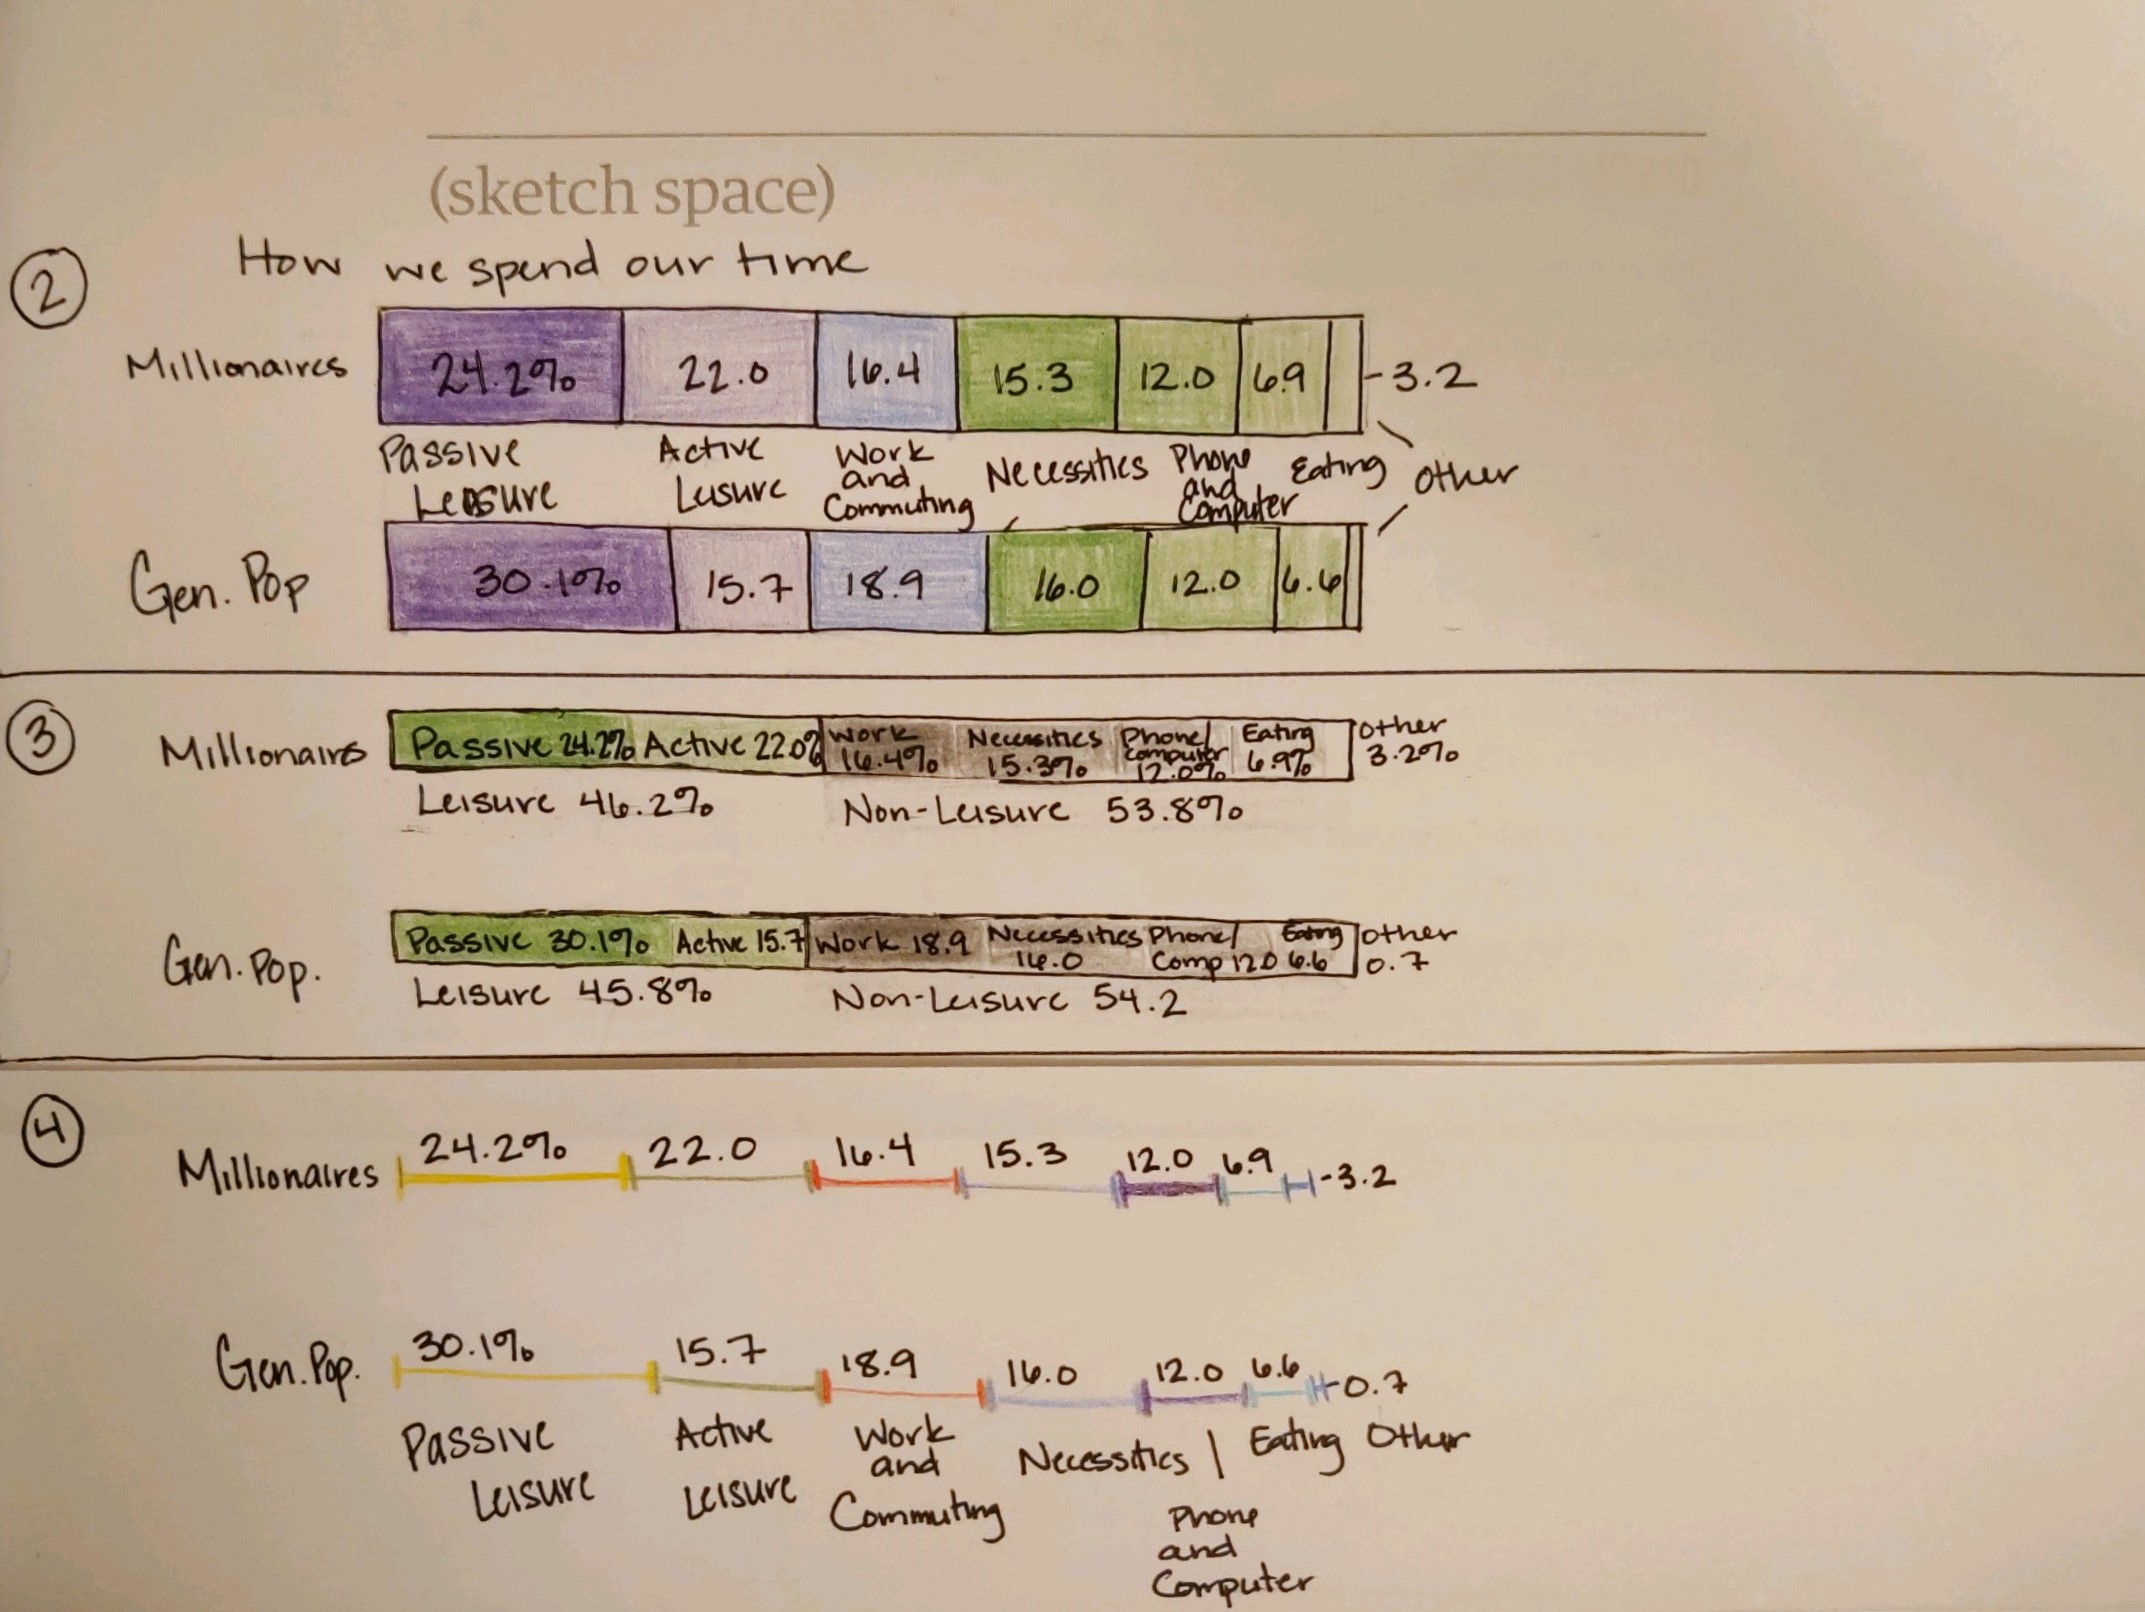 (sketch space)
2
How we spend our time
Millionaires
24.2%
22.0
16.4
15.3
12.0
6.9
-3.2
Passive
Leisure
Active
Leisure
Work
and
Commuting
Necessities
Phone
and
Computer
Eating
Other
Gen. Pop
30.1%
15.7
18.9
16.0
12.0
6.6
3
Millionaires
Passive 24.2%
Active 22.0%
Work
16.4%
Necessities
15.3%
Phone/
Computer
12.0%
Eating
6.9%
Other
3.2%
Leisure 46.2%
Non-Leisure 53.8%
Gen. Pop.
Passive 30.1%
Active 15.7
Work 18.9
Necessities
16.0
Phone/
Comp 12.0
Eating
6.6
Other
0.7
Leisure 45.8%
Non-Leisure 54.2
4
Millionaires
24.2%
22.0
16.4
15.3
12.0
6.9
-3.2
Gen. Pop.
30.1%
15.7
18.9
16.0
12.0
6.6
-0.7
Passive
Leisure
Active
Leisure
Work
and
Commuting
Necessities
Phone
and
Computer
Eating
Other